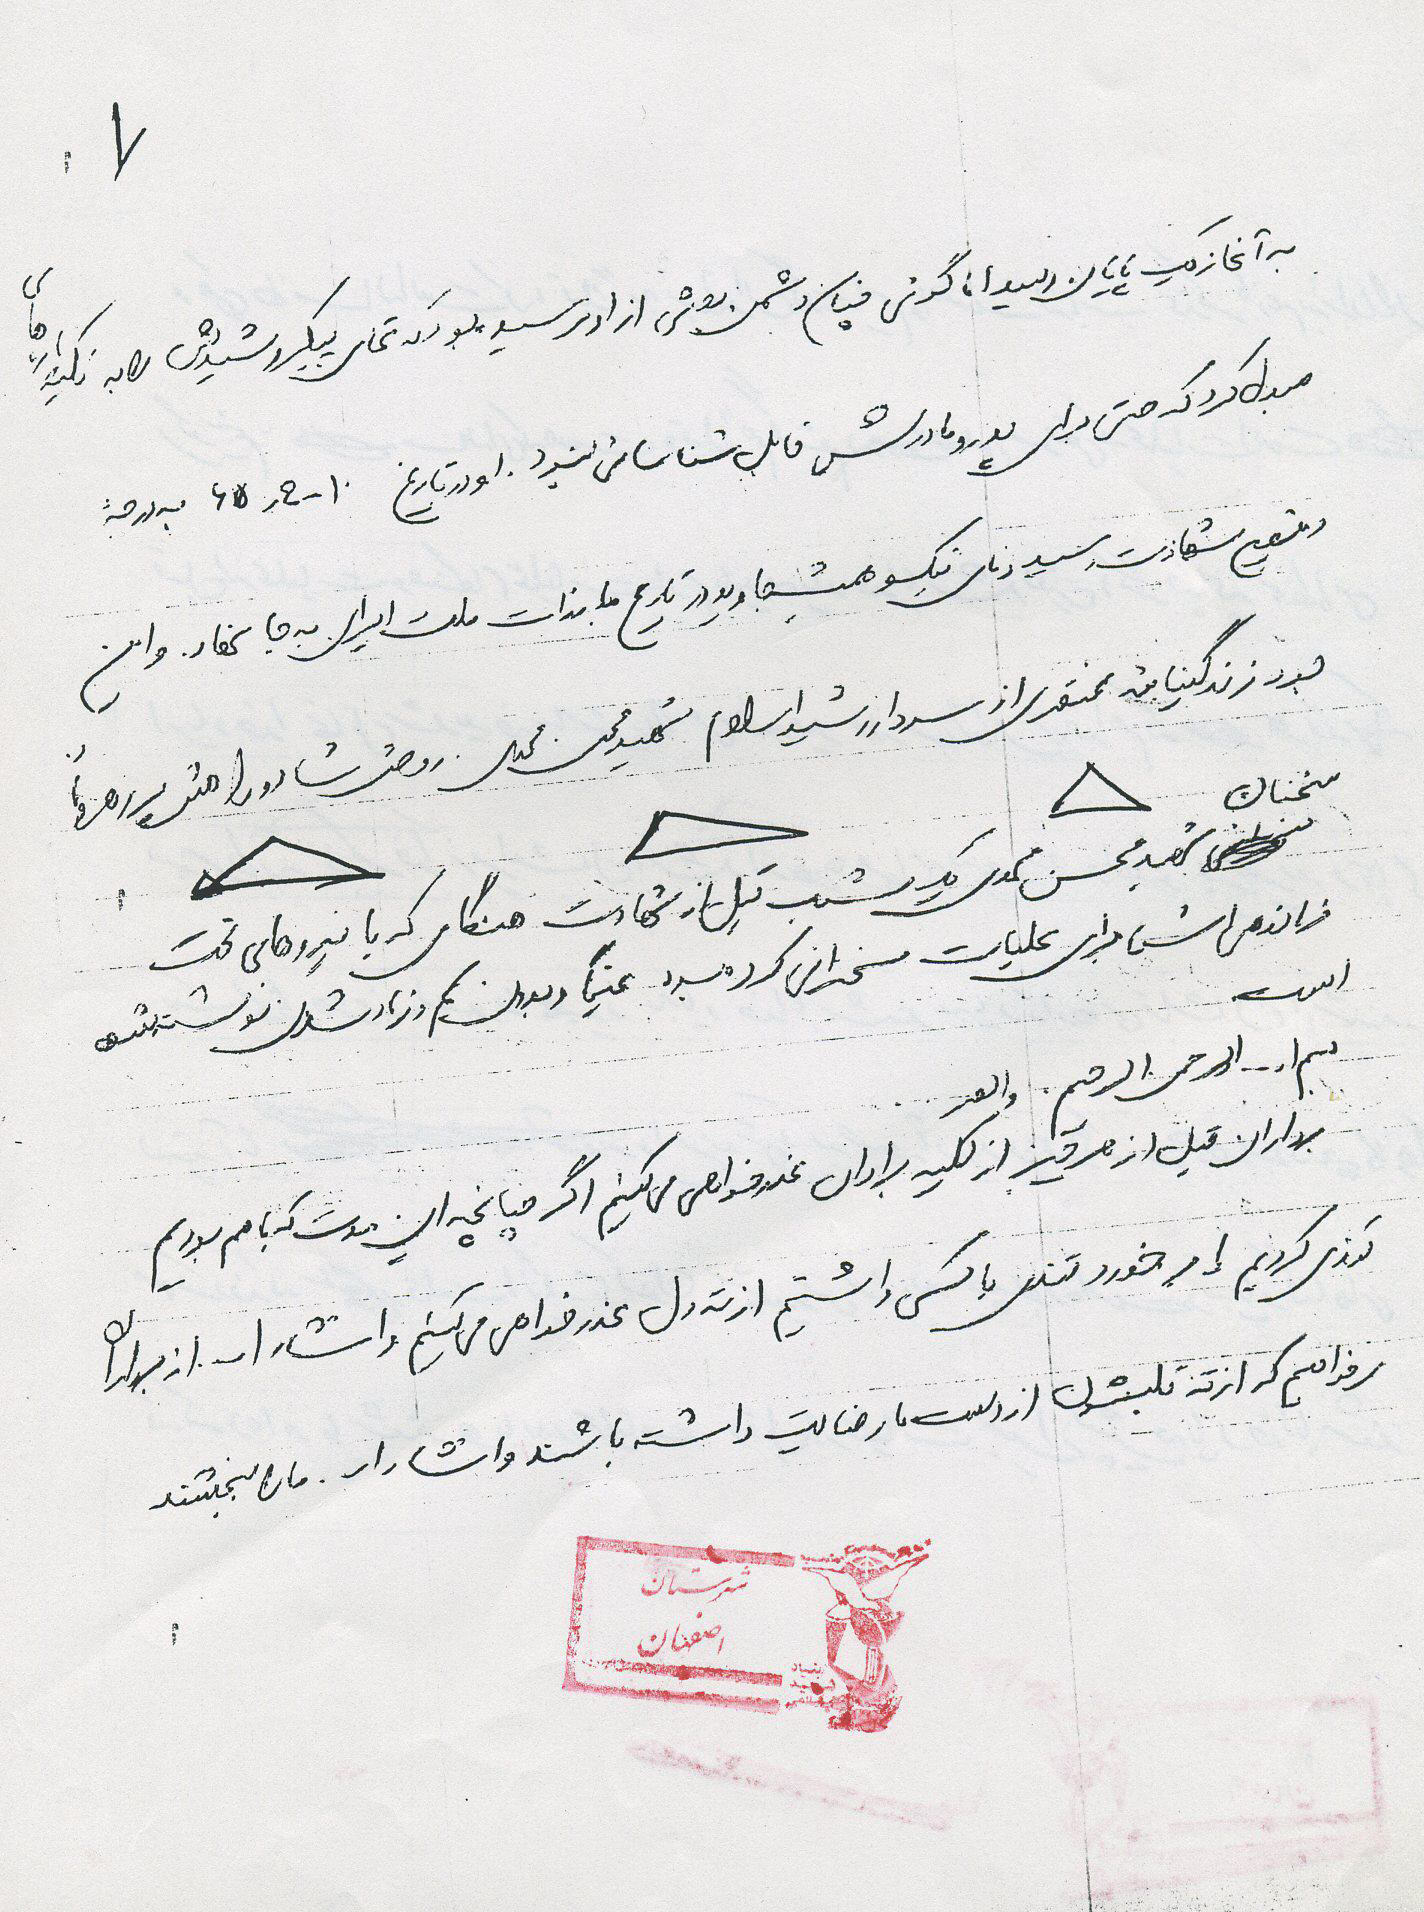 ۷
به آغاز یک پایان رسید اما گوئی چنان دشمن بعثی از او ترسیده بود که تمامی پیکر رشیدش را به تکه‌های
مبدل کرد که حتی برای پدر و مادرش قابل شناسائی نبود. او در تاریخ ۱۰-۲- به درجهٔ
رفیع شهادت رسید و نامی نیک و همیشه جاوید در تاریخ ملت ایران به جا نهاد. و این
بود زندگینامه مختصری از سردار رشید اسلام شهید محسن محمدی. روحش شاد و راهش پر رهرو باد
سخنان
شهید محسن محمدی یک شب قبل از شهادت هنگامی که با نیروهای تحت
فرماندهی اش برای عملیات سخنرانی کرده بود عیناً و بدون کم و زیاد شدن نوشته شده
است
بسم ا... الرحمن الرحیم. والعصر
برادران قبل از هر چیز از کلیه برادران عذرخواهی می‌کنیم اگر چنانچه این مدت که با هم بودیم
تندی کردیم برخورد تندی با کسی داشتیم از ته دل عذرخواهی می‌کنیم و انشاءا... از برادران
میخواهیم که از ته قلبشون از دست ما رضایت داشته باشند و انشاءا... ما را ببخشند
شهرستان
اصفهان
بنیاد
شهید